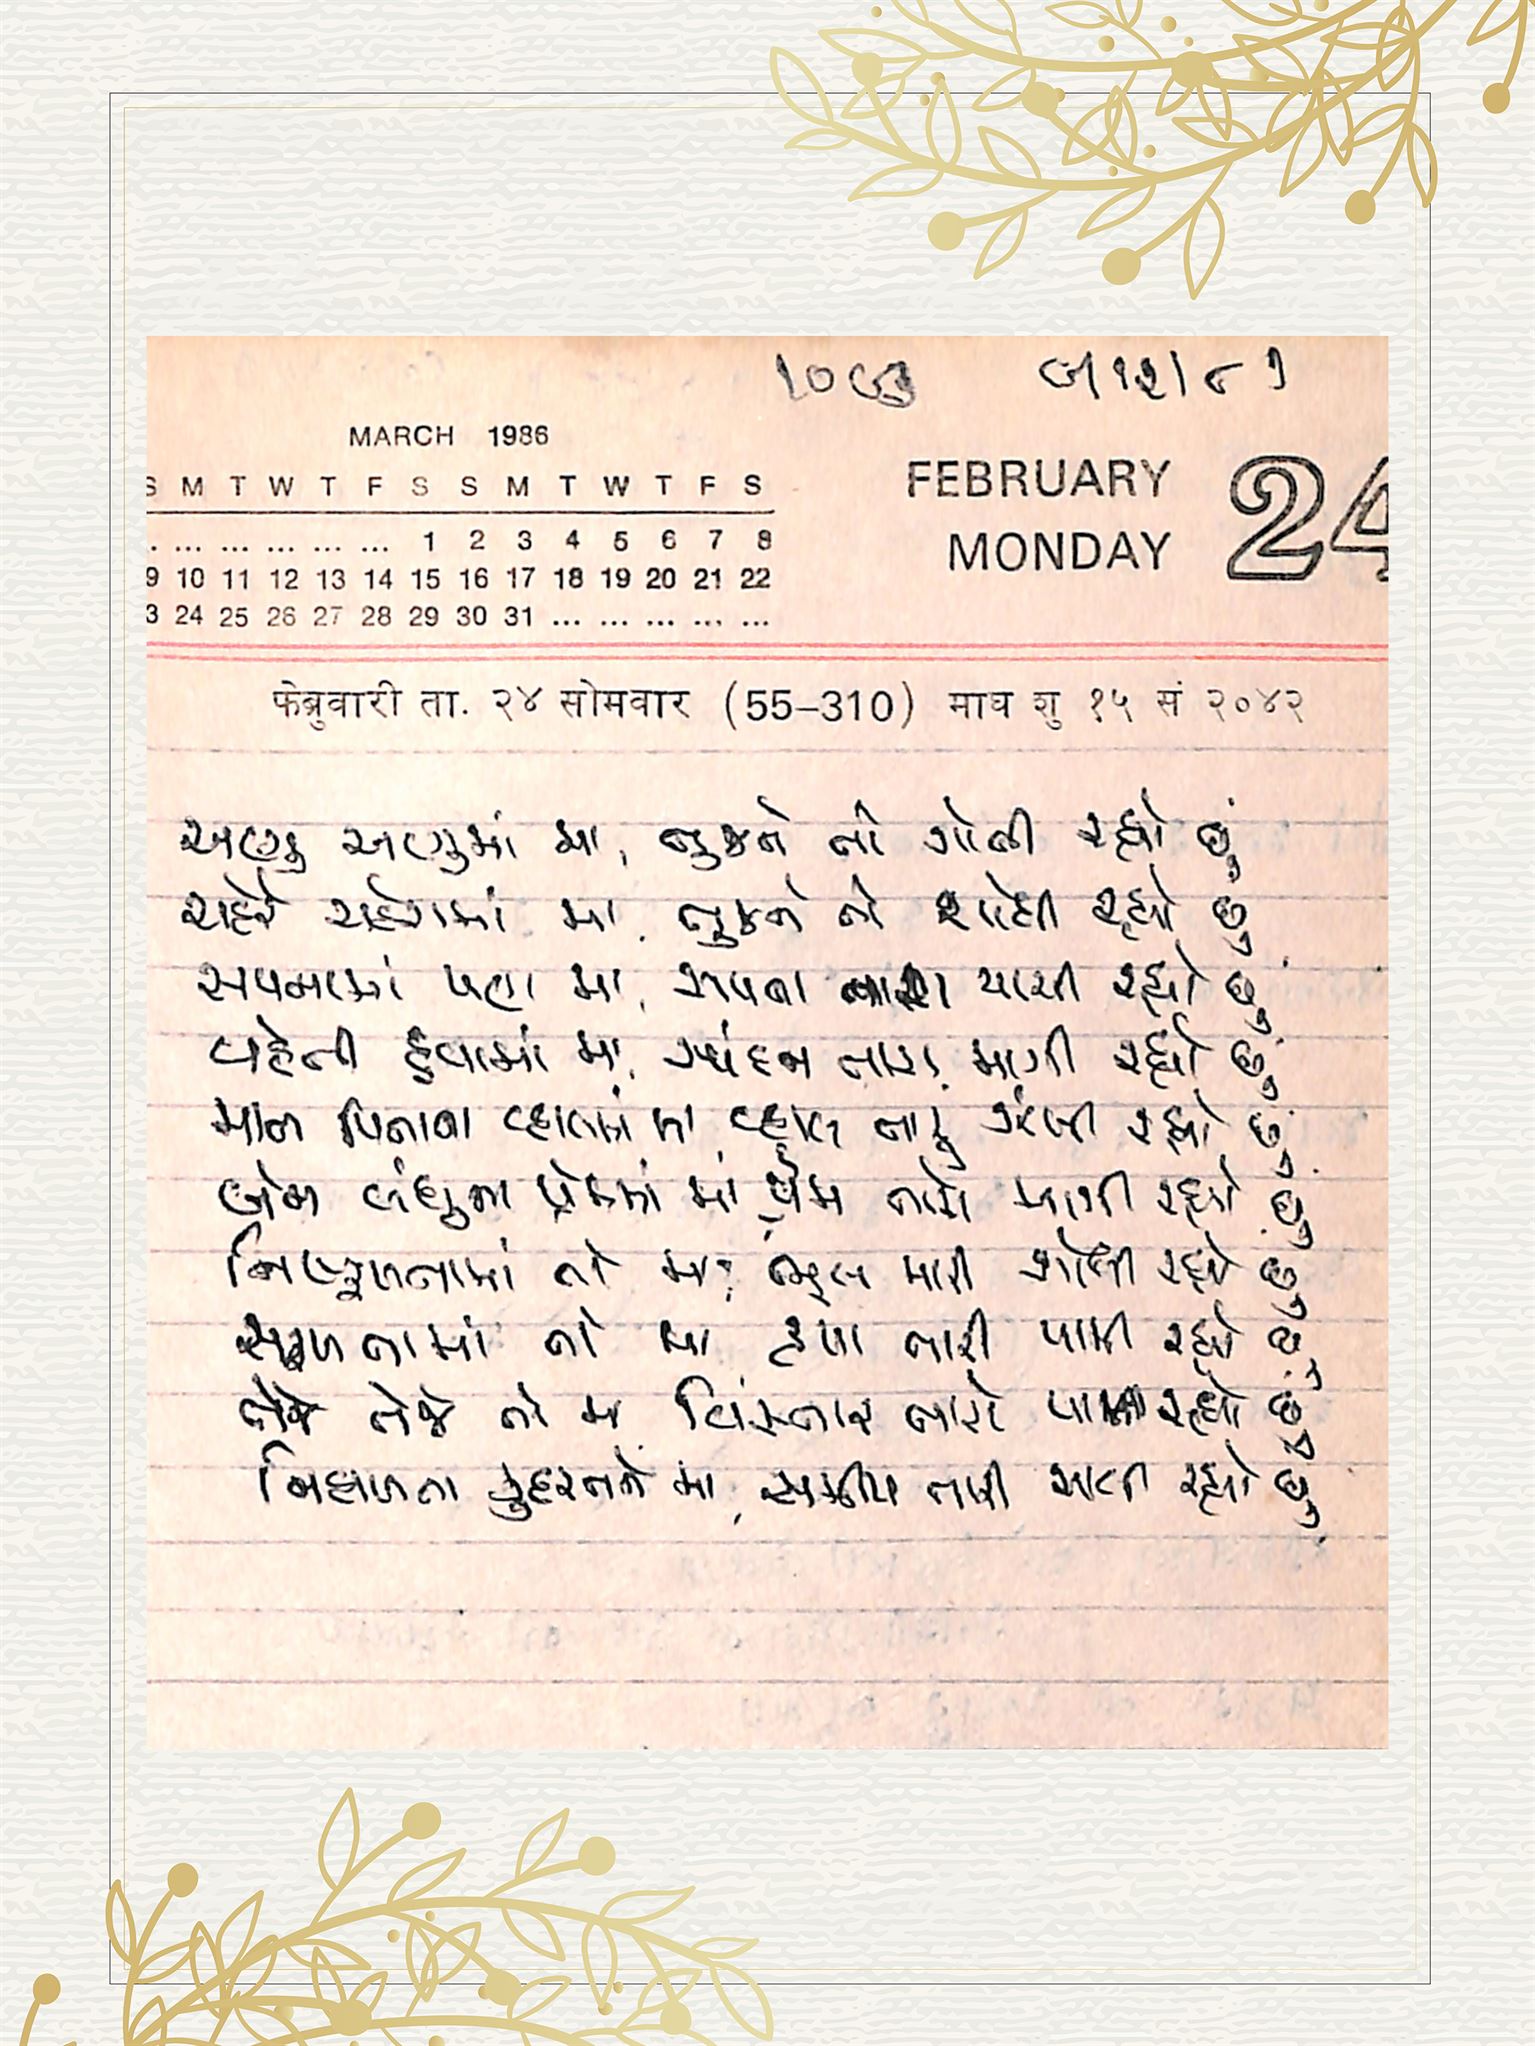 ૧૦૯૭ ૯/૧૨/૮૭
MARCH 1986
S M T W T F S S M T W T F S
. ... ... ... ... ... 1 2 3 4 5 6 7 8
9 10 11 12 13 14 15 16 17 18 19 20 21 22
3 24 25 26 27 28 29 30 31 ... ... ... ... ...
FEBRUARY
MONDAY
24
फेब्रुवारी ता. २४ सोमवार (55–310) माघ शु १५ सं २०४२
અણુ અણુમાં મા, તુજને તો ગોતી રહ્યો છું
ચહેરે ચહેરામાં મા, તુજને તો શોધી રહ્યો છું
સપનામાં પણ મા, સપના તારા યાચી રહ્યો છું
વહેતી હવામાં મા, સ્પંદન તારા માગી રહ્યો છું
માત પિતાના વ્હાલમાં મા વ્હાલ તારું ઝંખી રહ્યો છું
બેન બંધુના પ્રેમમાં મા પ્રેમ તારો માગી રહ્યો છું
નિષ્ફળતામાં તો મા, ભૂલ મારી શોધી રહ્યો છું
સફળતામાં તો મા કૃપા તારી પામી રહ્યો છું
તેજે તેજે તો મા વિસ્તાર તારો પામી રહ્યો છું
નિહાળતા કુદરતને મા, સમીપ તારી આવી રહ્યો છું